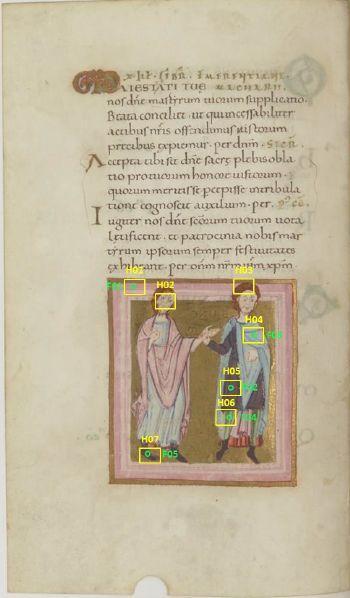 nos dñe martyrum tuorum supplicatio.
Beata conciliet. ut quincessabiliter
actibus nr̃is offendimus iustorum
precibus expiemur. per dnm̃.
Accepta tibi sit dñe sacrę plebis obla
tio pro tuorum honore
quorum meritis se percepisse in tribula
tione cognoscit auxilium. per.
Iugiter nos dñe scõrum tuorum uota
lętificent. et patrocinia nobis mar
tyrum ipsorum semper festiuitates
exhibeant. per dñm nr̃m ihm xpm̃.
H01 H03
F01 H02
H04
F03
H05
F02
H06
F04
H07
F05